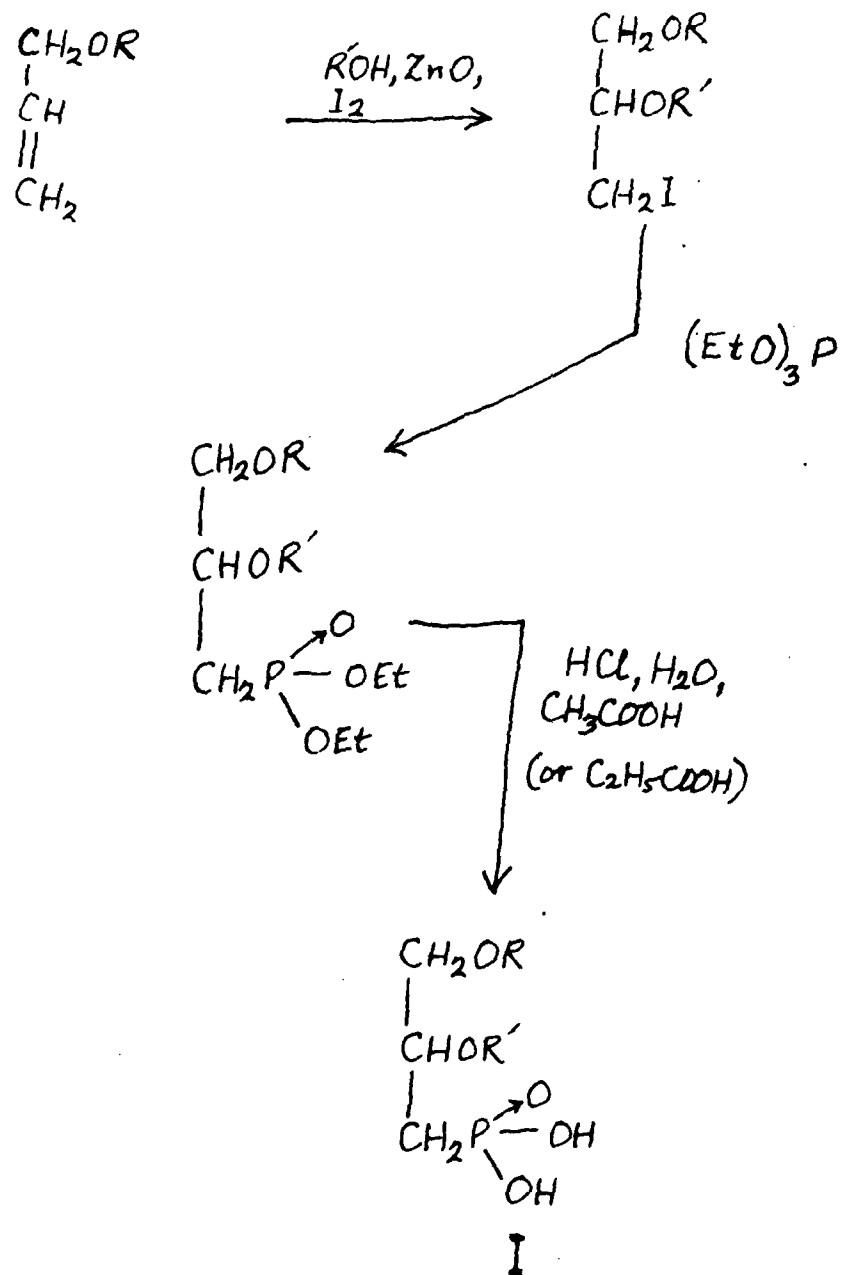 CH₂OR
CH
CH₂
R′OH, ZnO,
I₂
CH₂OR
CHOR′
CH₂I
(EtO)₃P
CH₂OR
CHOR′
O
CH₂P — OEt
OEt
HCl, H₂O,
CH₃COOH
(or C₂H₅COOH)
CH₂OR
CHOR′
O
CH₂P — OH
OH
I